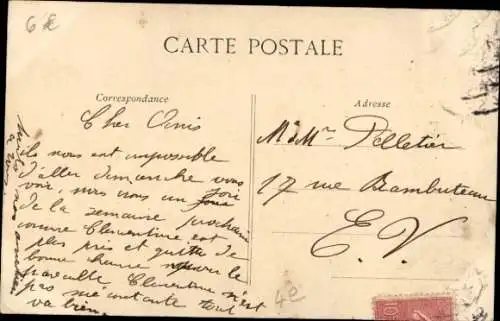 6 €
CARTE POSTALE
Correspondance
Adresse
Cher Amis
Ils nous est impossible
d'aller Dimanche vous
voir, mes nous un jour
de la semaine prochain
comme Clementine est de
plus pris et quitte de
bonne heure pour le
Clementine n'est
pas sue contente tout
va bien.
Mr & Mme Pelletier
17 rue Rambuteau
E. V.
4e
10